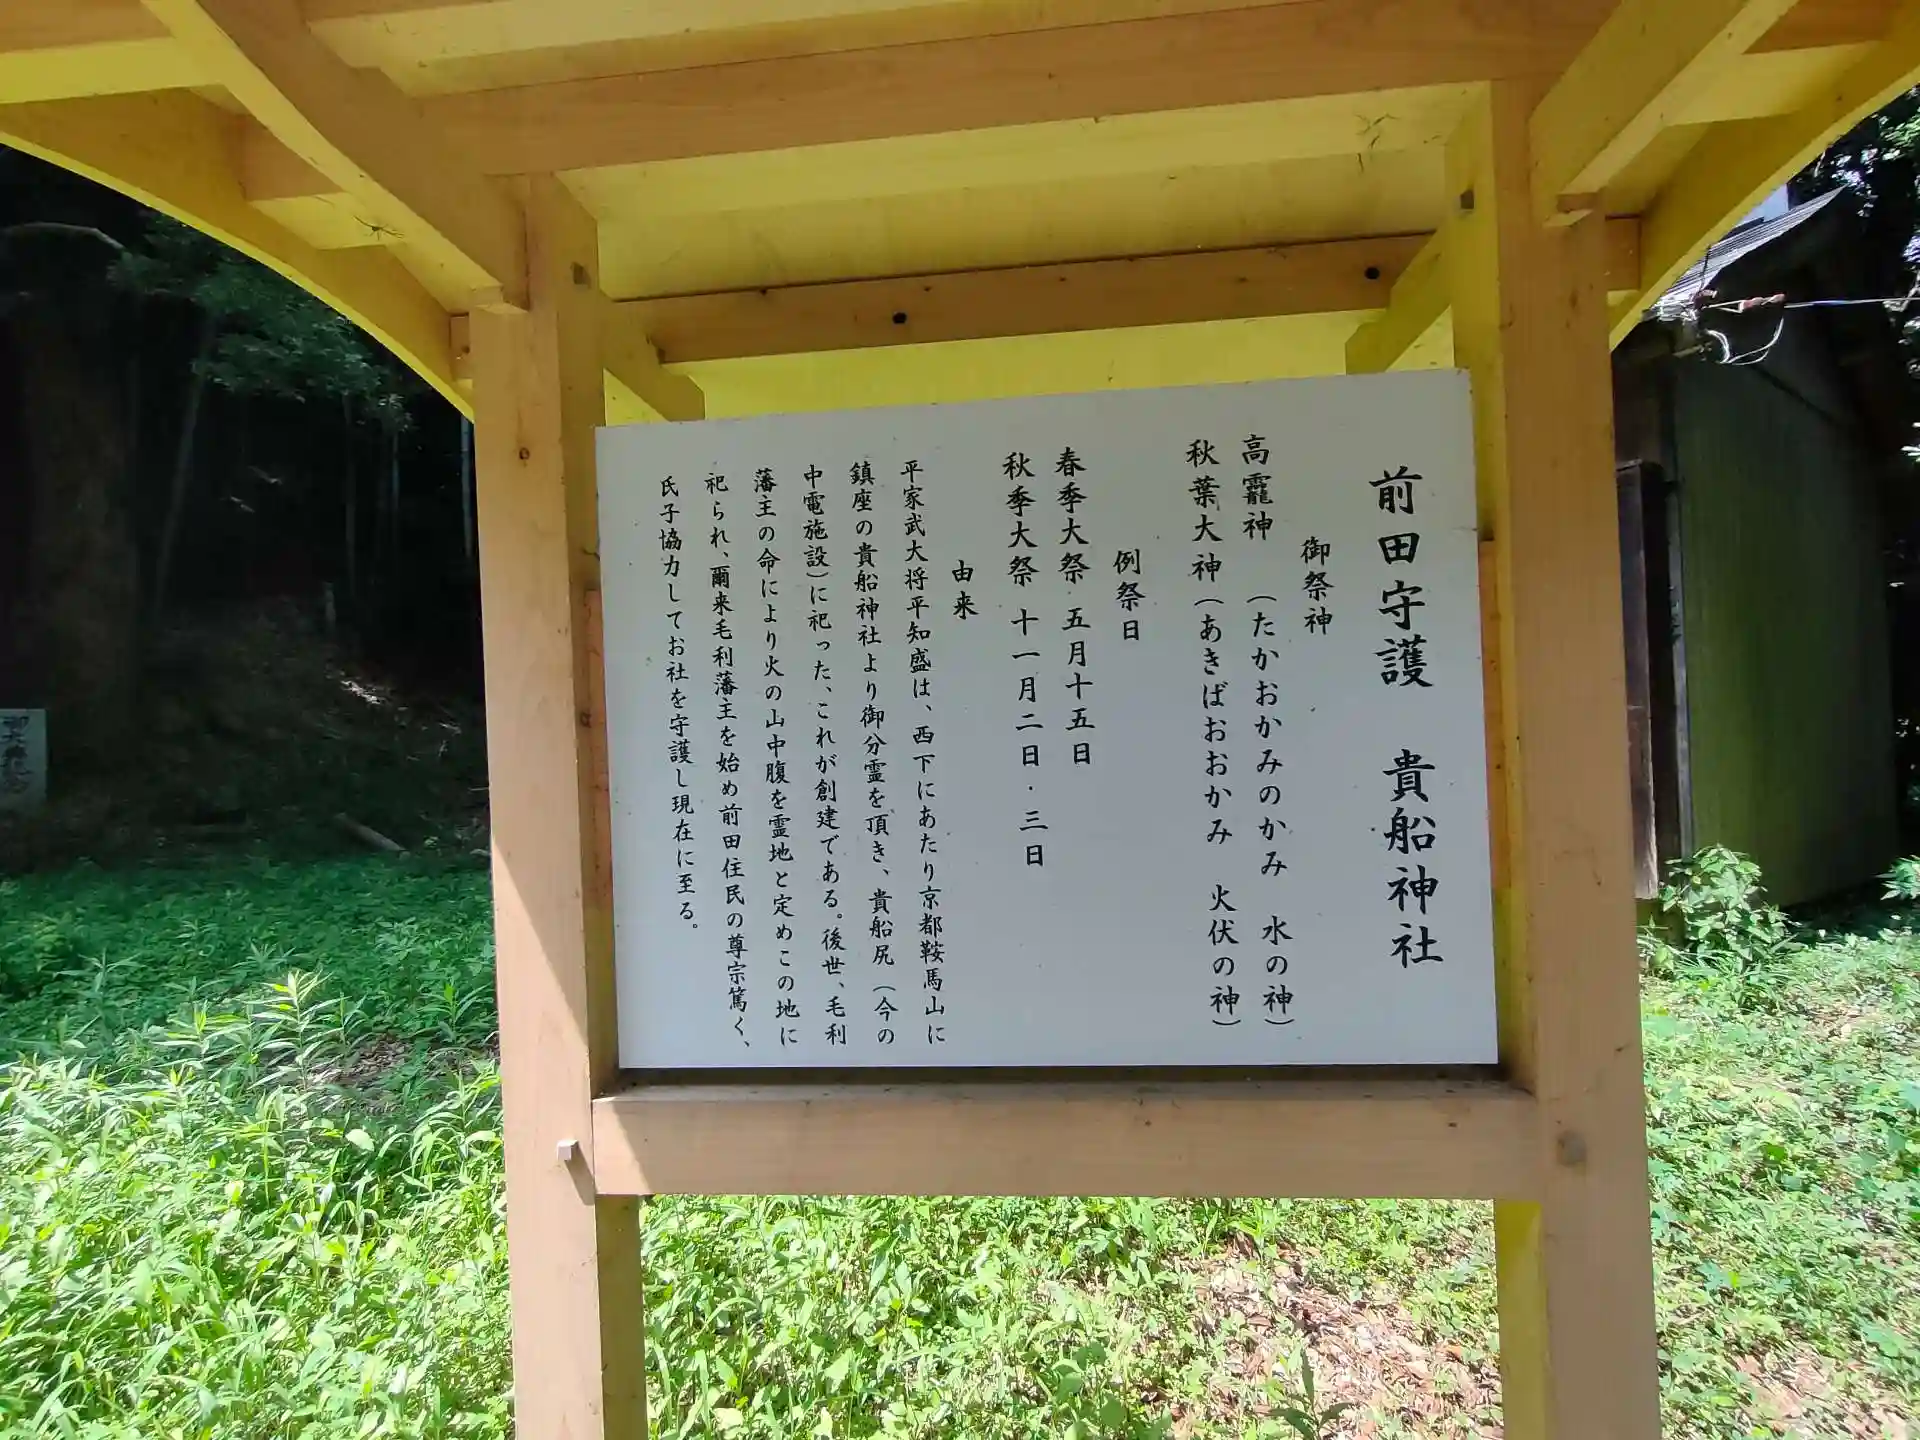 前田守護　貴船神社
御祭神
高龗神　（たかおかみのかみ　水の神）
秋葉大神（あきばおおかみ　火伏の神）
例祭日
春季大祭　五月十五日
秋季大祭　十一月二日・三日
由来
平家武大将平知盛は、西下にあたり京都鞍馬山に
鎮座の貴船神社より御分霊を頂き、貴船尻（今の
中電施設）に祀った、これが創建である。後世、毛利
藩主の命により火の山中腹を霊地と定めこの地に
祀られ、爾来毛利藩主を始め前田住民の尊宗篤く、
氏子協力してお社を守護し現在に至る。